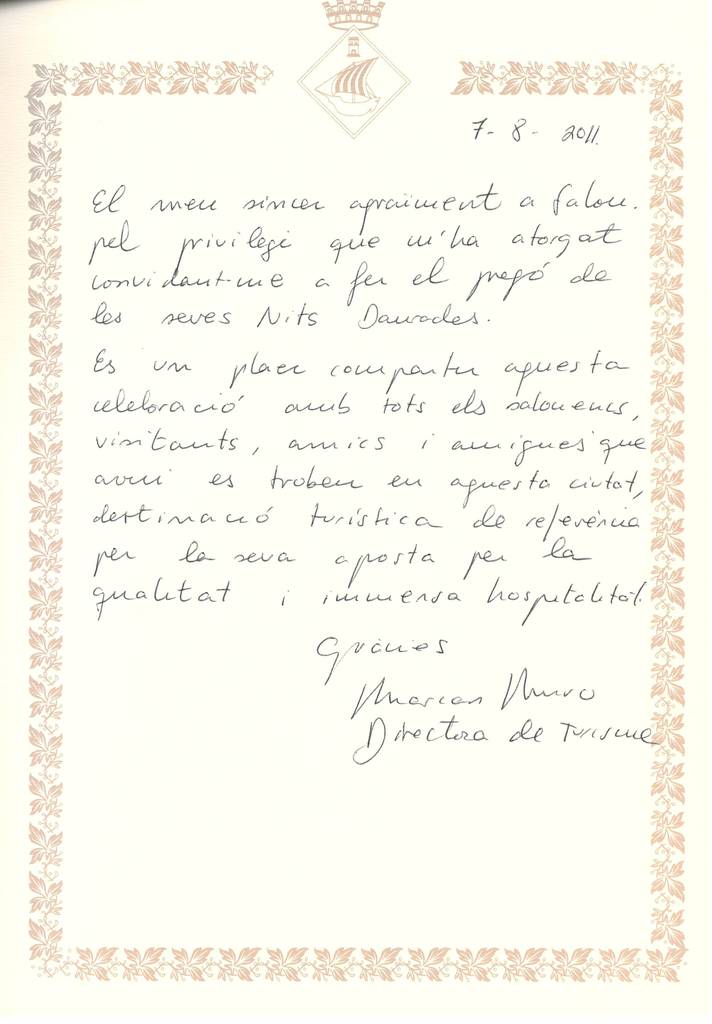 7-8-2011.
El meu sincer agraïment a Salou.
pel privilegi que m'ha atorgat
convidant-me a fer el pregó de
les seves Nits Daurades.
Es un plaer compartir aquesta
celebració amb tots els salouencs,
visitants, amics i amigues que
avui es troben en aquesta ciutat,
destinació turística de referència
per la seva aposta per la
qualitat i immensa hospitalitat.
Gràcies
Marian Muro
Directora de Turisme